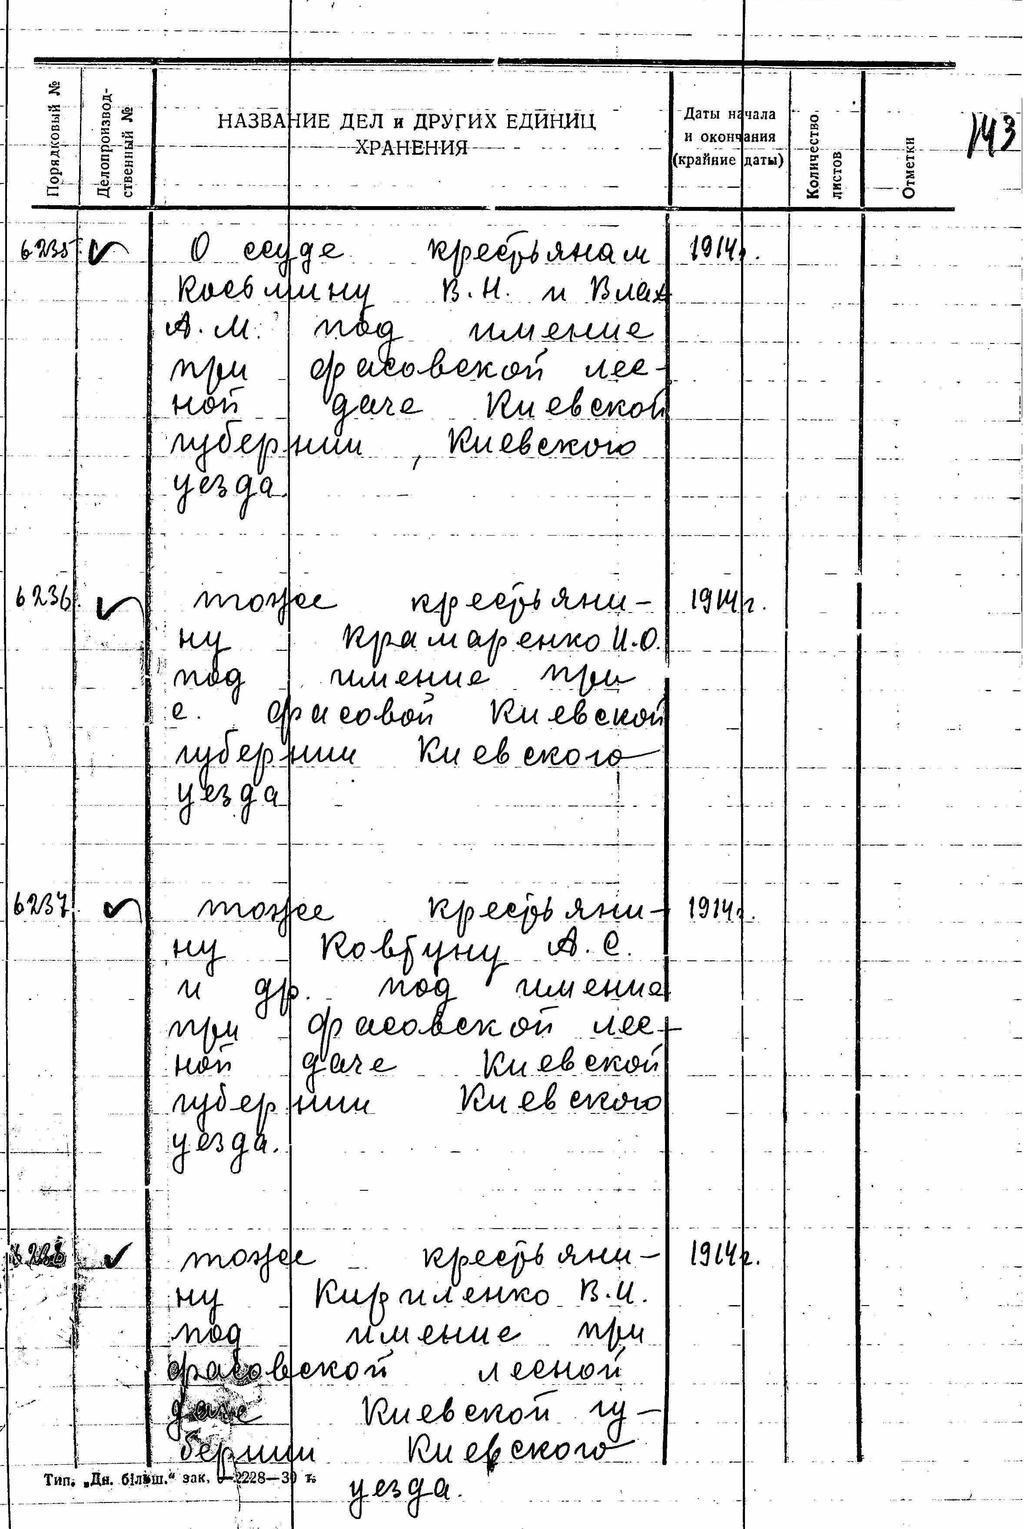 Порядковый №
Делопроизвод-
ственный №
НАЗВАНИЕ ДЕЛ и ДРУГИХ ЕДИНИЦ
ХРАНЕНИЯ
Даты начала
и окончания
(крайние даты)
Количество
листов
Отметки
143
6235 О ссуде крестьянам 1914г.
Косьмину В.Н. и Влах
А.М. под имение
при Фасовской лес-
ной даче Киевской
губернии, Киевского
уезда.
6236 тоже крестьяни- 1914г.
ну Крамаренко И.О.
под имение при
с. Фасовой Киевской
губернии Киевского
уезда
6237 тоже крестьяни- 1914г.
ну Ковтуну А.С.
и др. под имение
при Фасовской лес-
ной даче Киевской
губернии Киевского
уезда.
6238 тоже крестьяни- 1914г.
ну Кириленко В.И.
под имение при
Фасовской лесной
даче Киевской гу-
бернии Киевского
уезда.
Тип. „Дн. більш.“ зак. 2228—30 т.